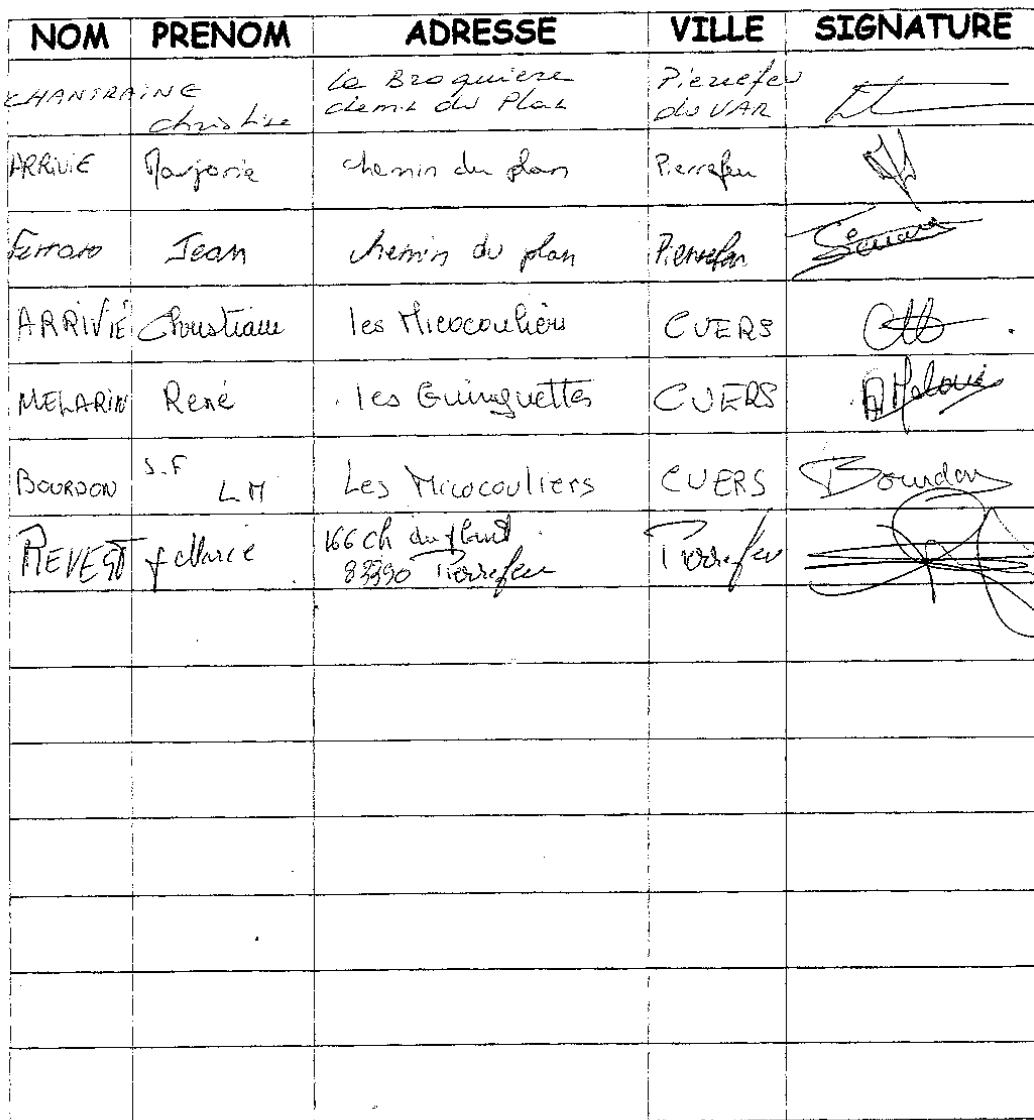 NOM PRENOM ADRESSE VILLE SIGNATURE
CHANTRAINE Christine La Broquiere Pierrefeu
chemin du Plan du VAR
ARRIVIE Marjorie chemin du plan Pierrefeu
Ferraro Jean chemin du plan Pierrefeu
ARRIVIÉ Christiane les Micocouliers CUERS
MELARIN René les Guinguettes CUERS
BOURDON S.F L.M Les Micocouliers CUERS Bourdon
REVEST Marie 166 ch du plan Pierrefeu
83390 Pierrefeu